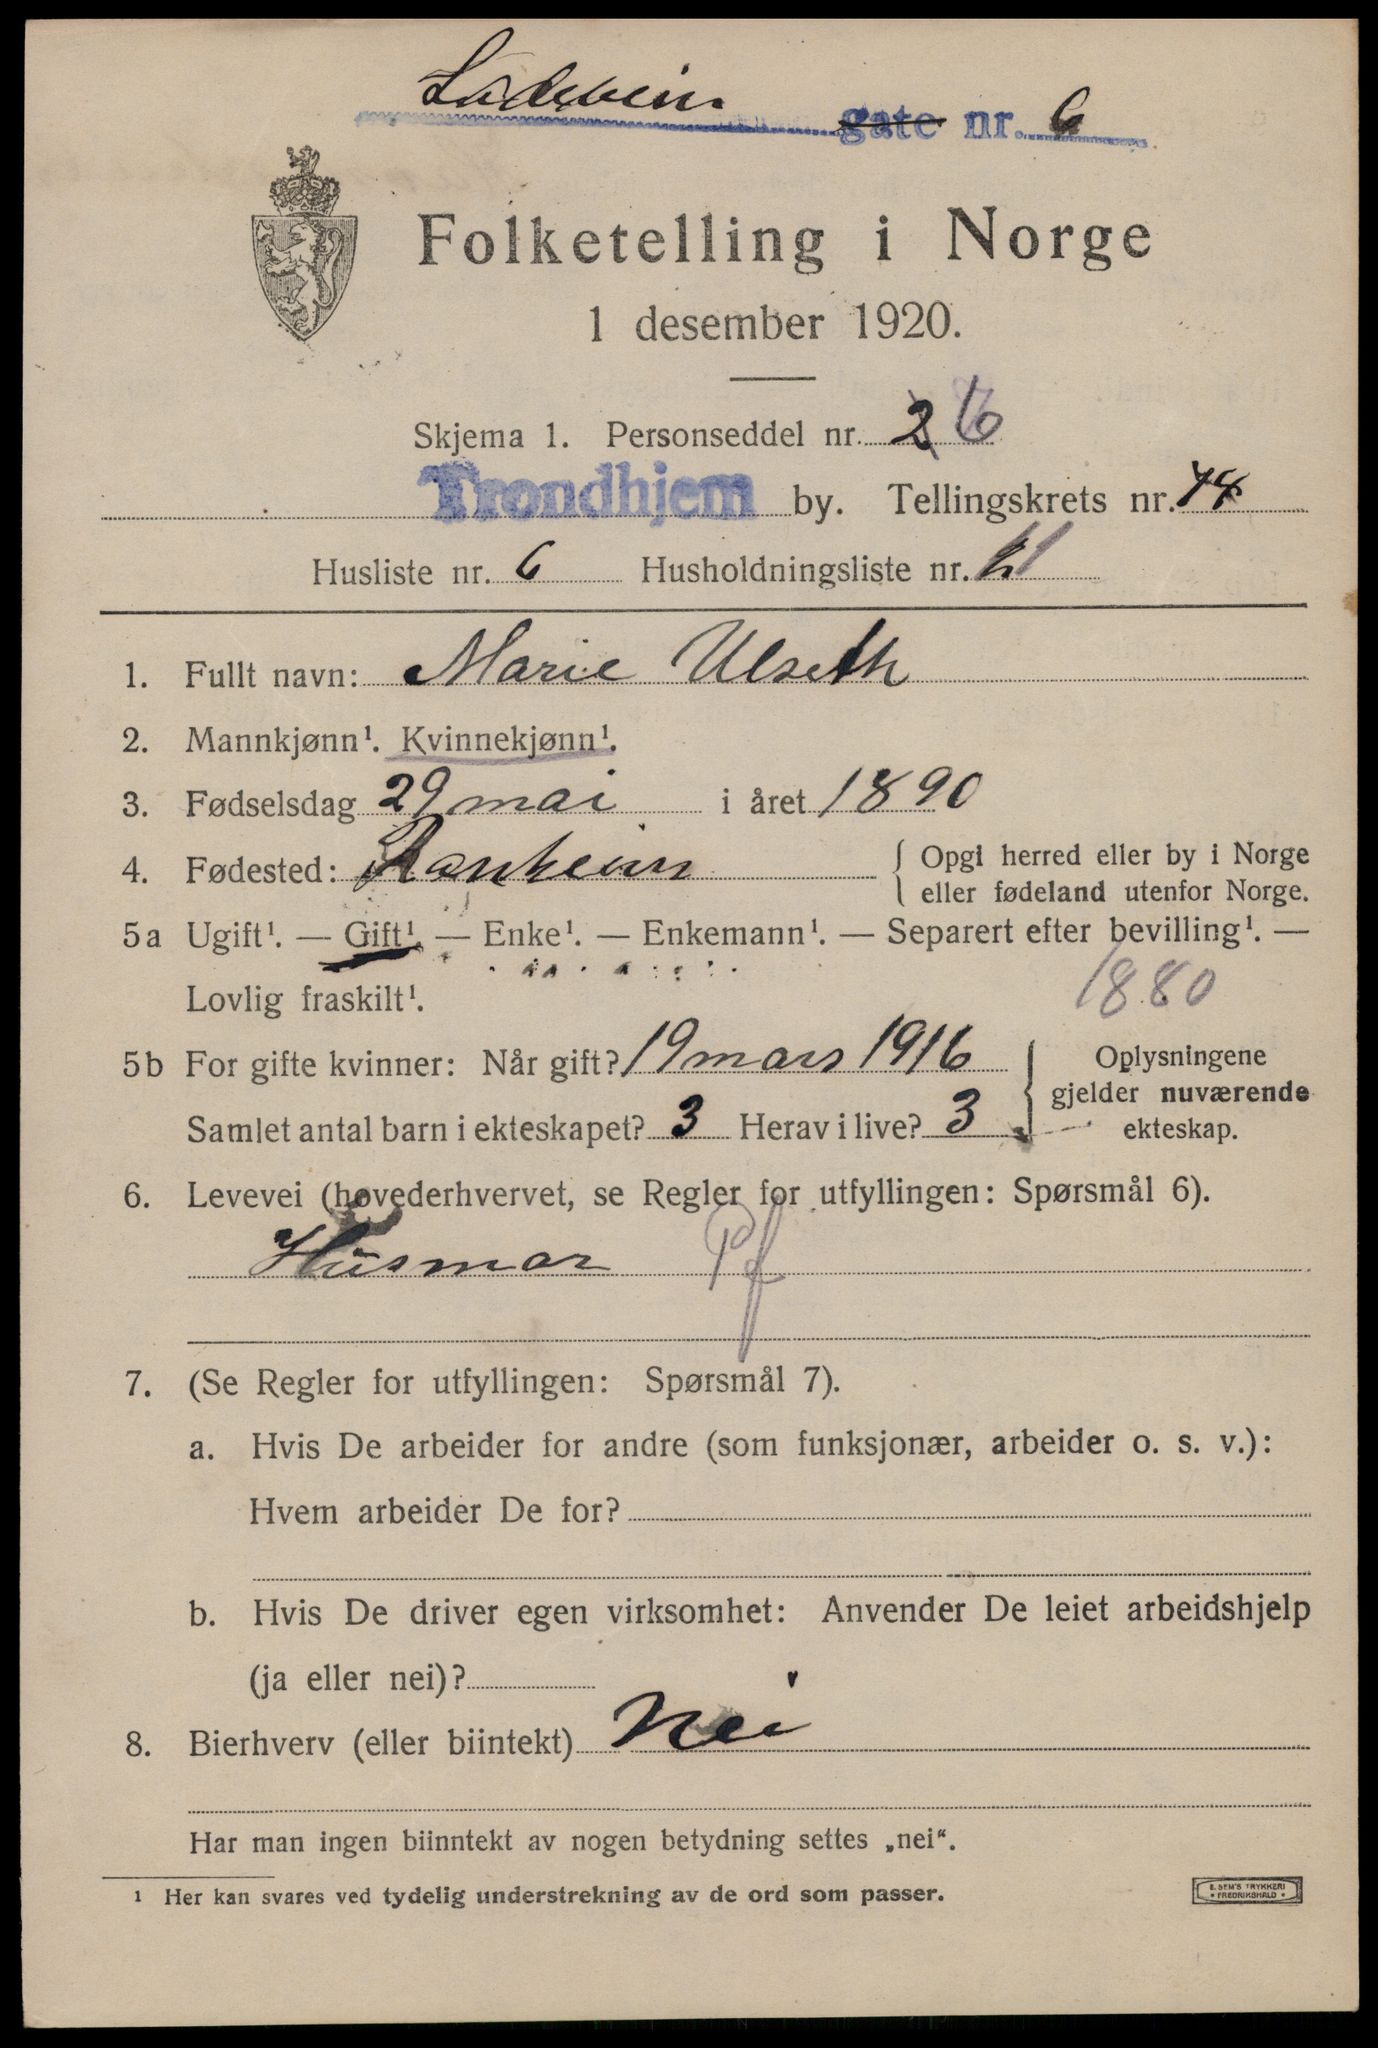 Ladevein gate nr. 6
Folketelling i Norge
1 desember 1920.
Skjema 1. Personseddel nr. 2 6
Trondhjem by. Tellingskrets nr. 44
Husliste nr. 6 Husholdningsliste nr. 11
1. Fullt navn: Marie Ulseth
2. Mannkjønn¹. Kvinnekjønn¹.
3. Fødselsdag 29 mai i året 1890
4. Fødested: Ranheim { Opgi herred eller by i Norge
eller fødeland utenfor Norge.
5a Ugift¹. — Gift¹. — Enke¹. — Enkemann¹. — Separert efter bevilling¹. —
Lovlig fraskilt¹. 1880
5b For gifte kvinner: Når gift? 19 mars 1916 } Oplysningene
gjelder nuværende
Samlet antal barn i ekteskapet? 3 Herav i live? 3 ekteskap.
6. Levevei (hovederhvervet, se Regler for utfyllingen: Spørsmål 6).
Husmor Pf
7. (Se Regler for utfyllingen: Spørsmål 7).
a. Hvis De arbeider for andre (som funksjonær, arbeider o. s. v.):
Hvem arbeider De for?
b. Hvis De driver egen virksomhet: Anvender De leiet arbeidshjelp
(ja eller nei)?
8. Bierhverv (eller biintekt) Nei
Har man ingen biinntekt av nogen betydning settes „nei“.
¹ Her kan svares ved tydelig understrekning av de ord som passer.
E. SEM'S TRYKKERI
• FREDRIKSHALD •